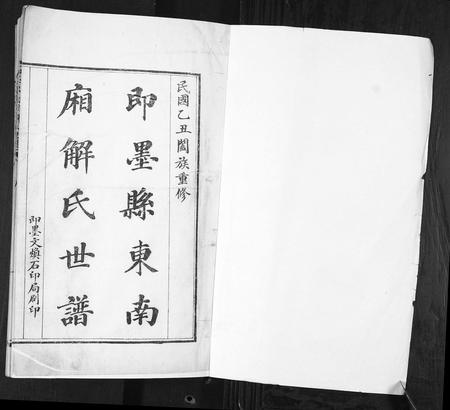 民國乙丑闔族重修
即墨縣東南
廂解氏世譜
即墨文纘石印局刷印